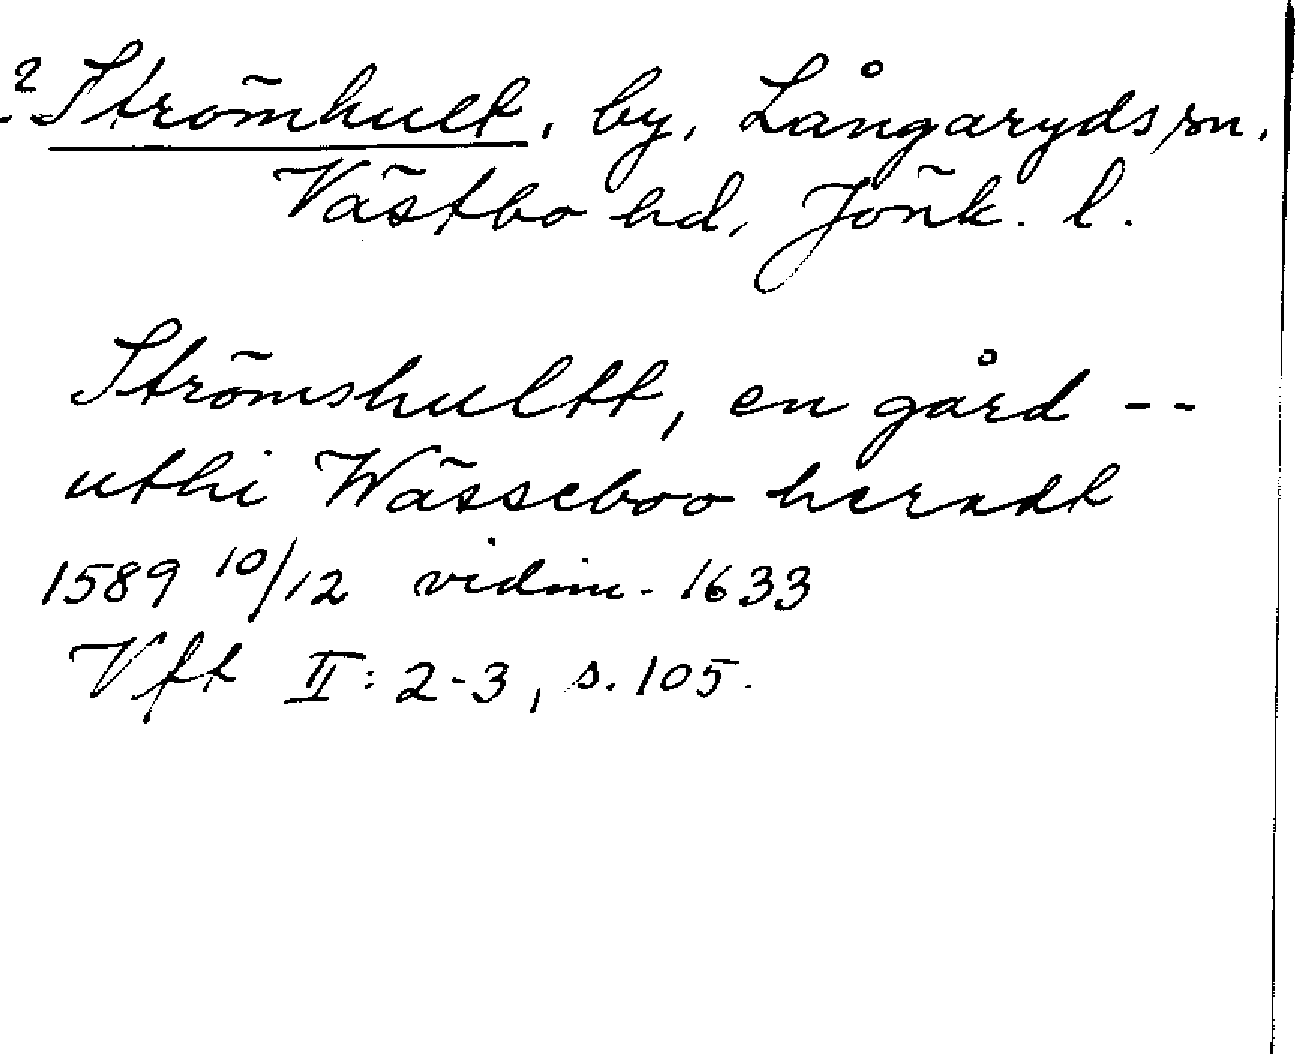 2 Strömhult, by, Långaryds sn,
Västbo hd, Jönk. l.
Strömshultt, en gård --
uthi Wässeboo heradt
1589 10/12 vidim. 1633
Vft II: 2-3, s. 105.